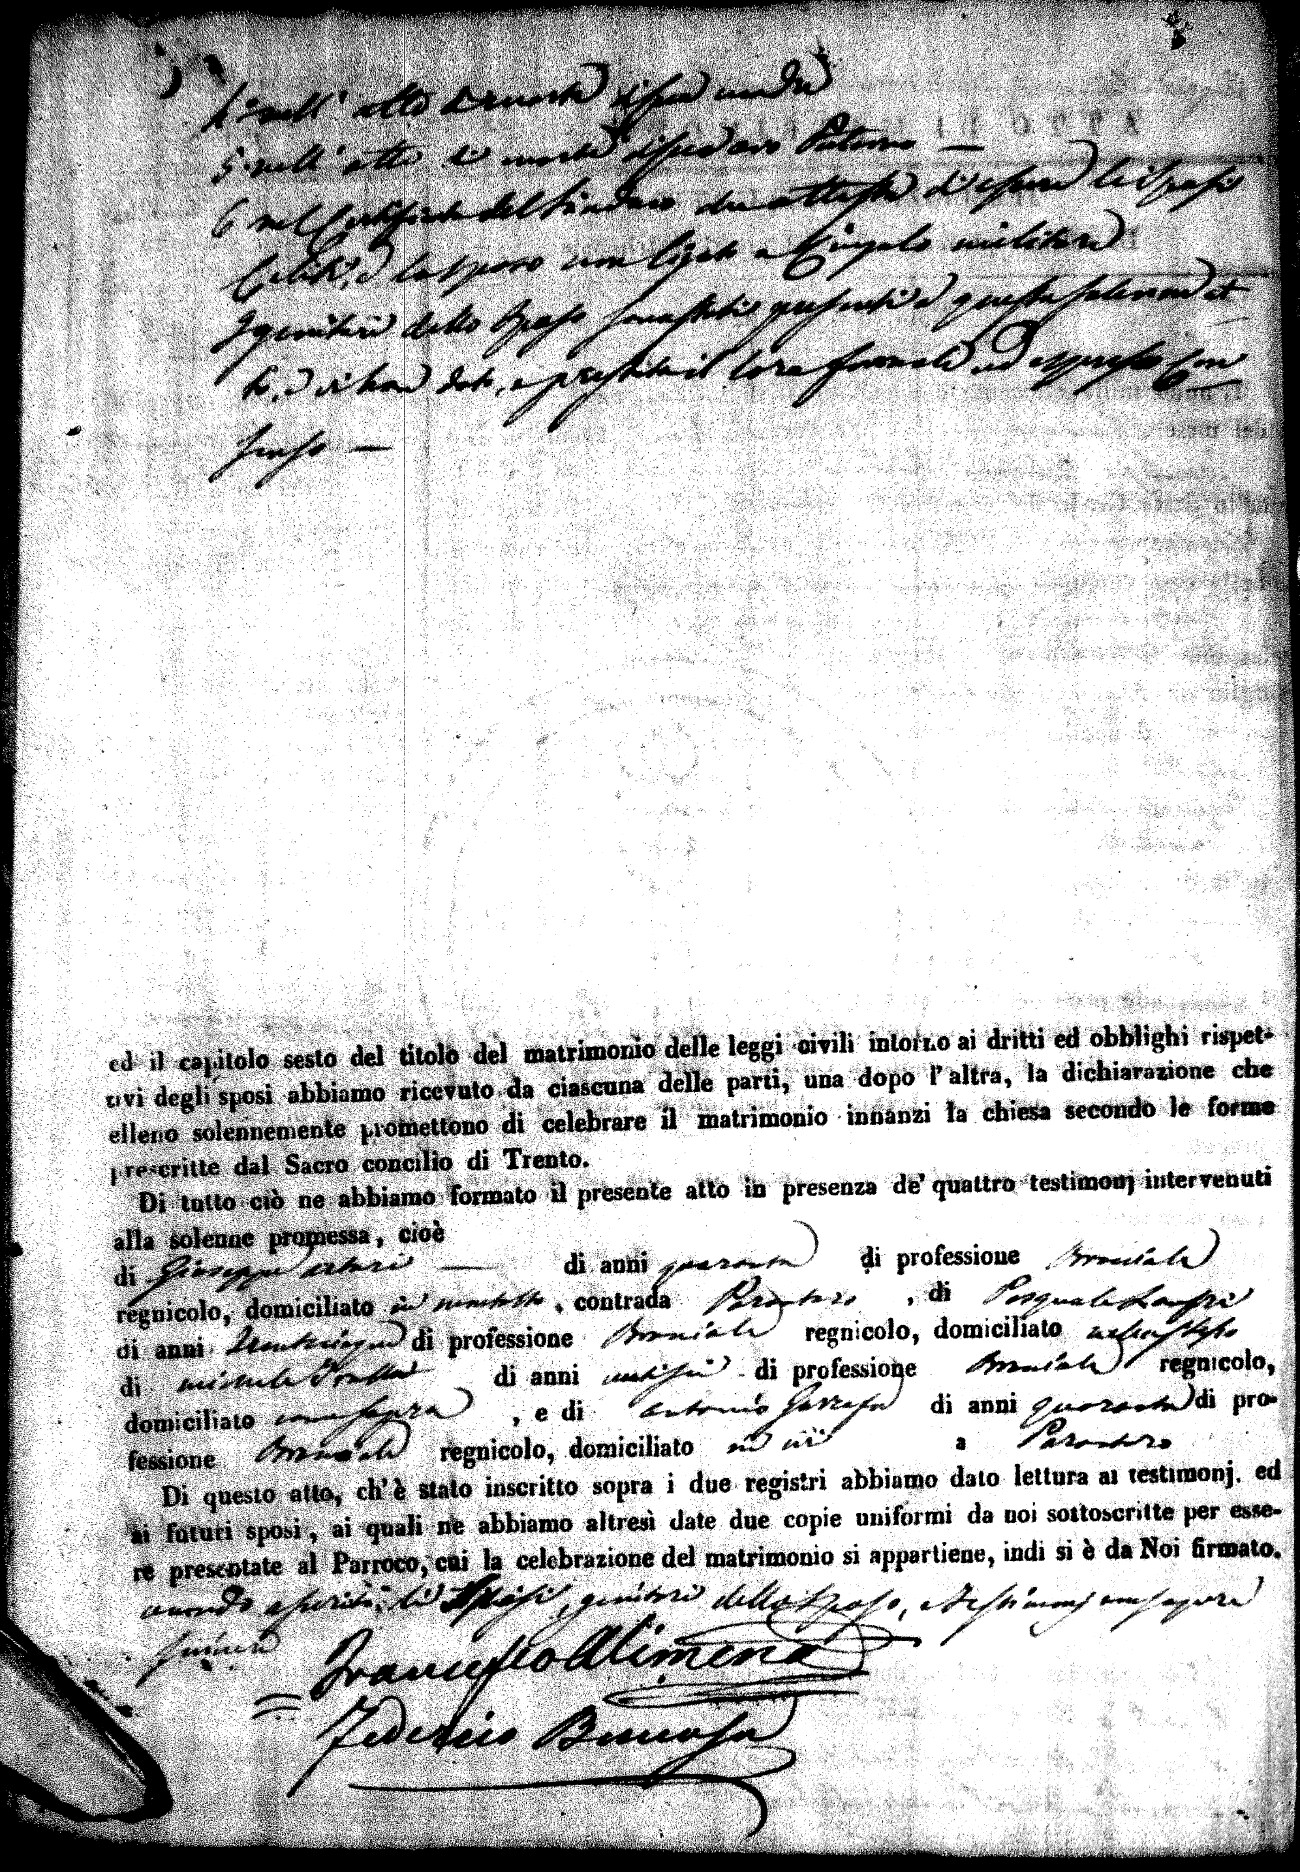 4. nell' atto di morte di sua madre
5. nell' atto di morte di suo avo Paterno —
6 nel Certificato del Sindaco che attesta di essere li Sposi
Celibi, e lo sposo non ligato a Cingolo militare
I genitori dello Sposo sono stati presenti a questo solenne at
to, e vi han dato, e prestato il loro formale ed espresso Con
senso —
ed il capitolo sesto del titolo del matrimonio delle leggi civili intorno ai dritti ed obblighi rispet-
tivi degli sposi abbiamo ricevuto da ciascuna delle parti, una dopo l'altra, la dichiarazione che
elleno solennemente promettono di celebrare il matrimonio innanzi la chiesa secondo le forme
prescritte dal Sacro concilio di Trento.
Di tutto ciò ne abbiamo formato il presente atto in presenza de' quattro testimonj intervenuti
alla solenne promessa, cioè
di Giuseppe Arturi — di anni quaranta di professione Bracciale
regnicolo, domiciliato in , contrada , di Pasquale
di anni trentacinque di professione Bracciale regnicolo, domiciliato
di Michele di anni di professione Bracciale regnicolo,
domiciliato come sopra , e di Antonio di anni quaranta di pro-
fessione Bracciale regnicolo, domiciliato in ivi a
Di questo atto, ch'è stato inscritto sopra i due registri abbiamo dato lettura ai testimonj, ed
ai futuri sposi, ai quali ne abbiamo altresì date due copie uniformi da noi sottoscritte per esse-
re presentate al Parroco, cui la celebrazione del matrimonio si appartiene, indi si è da Noi firmato.
avendo asserito li Sposi, genitori dello Sposo, e testimonj non sapere
scrivere
Francesco Alimena
Federico